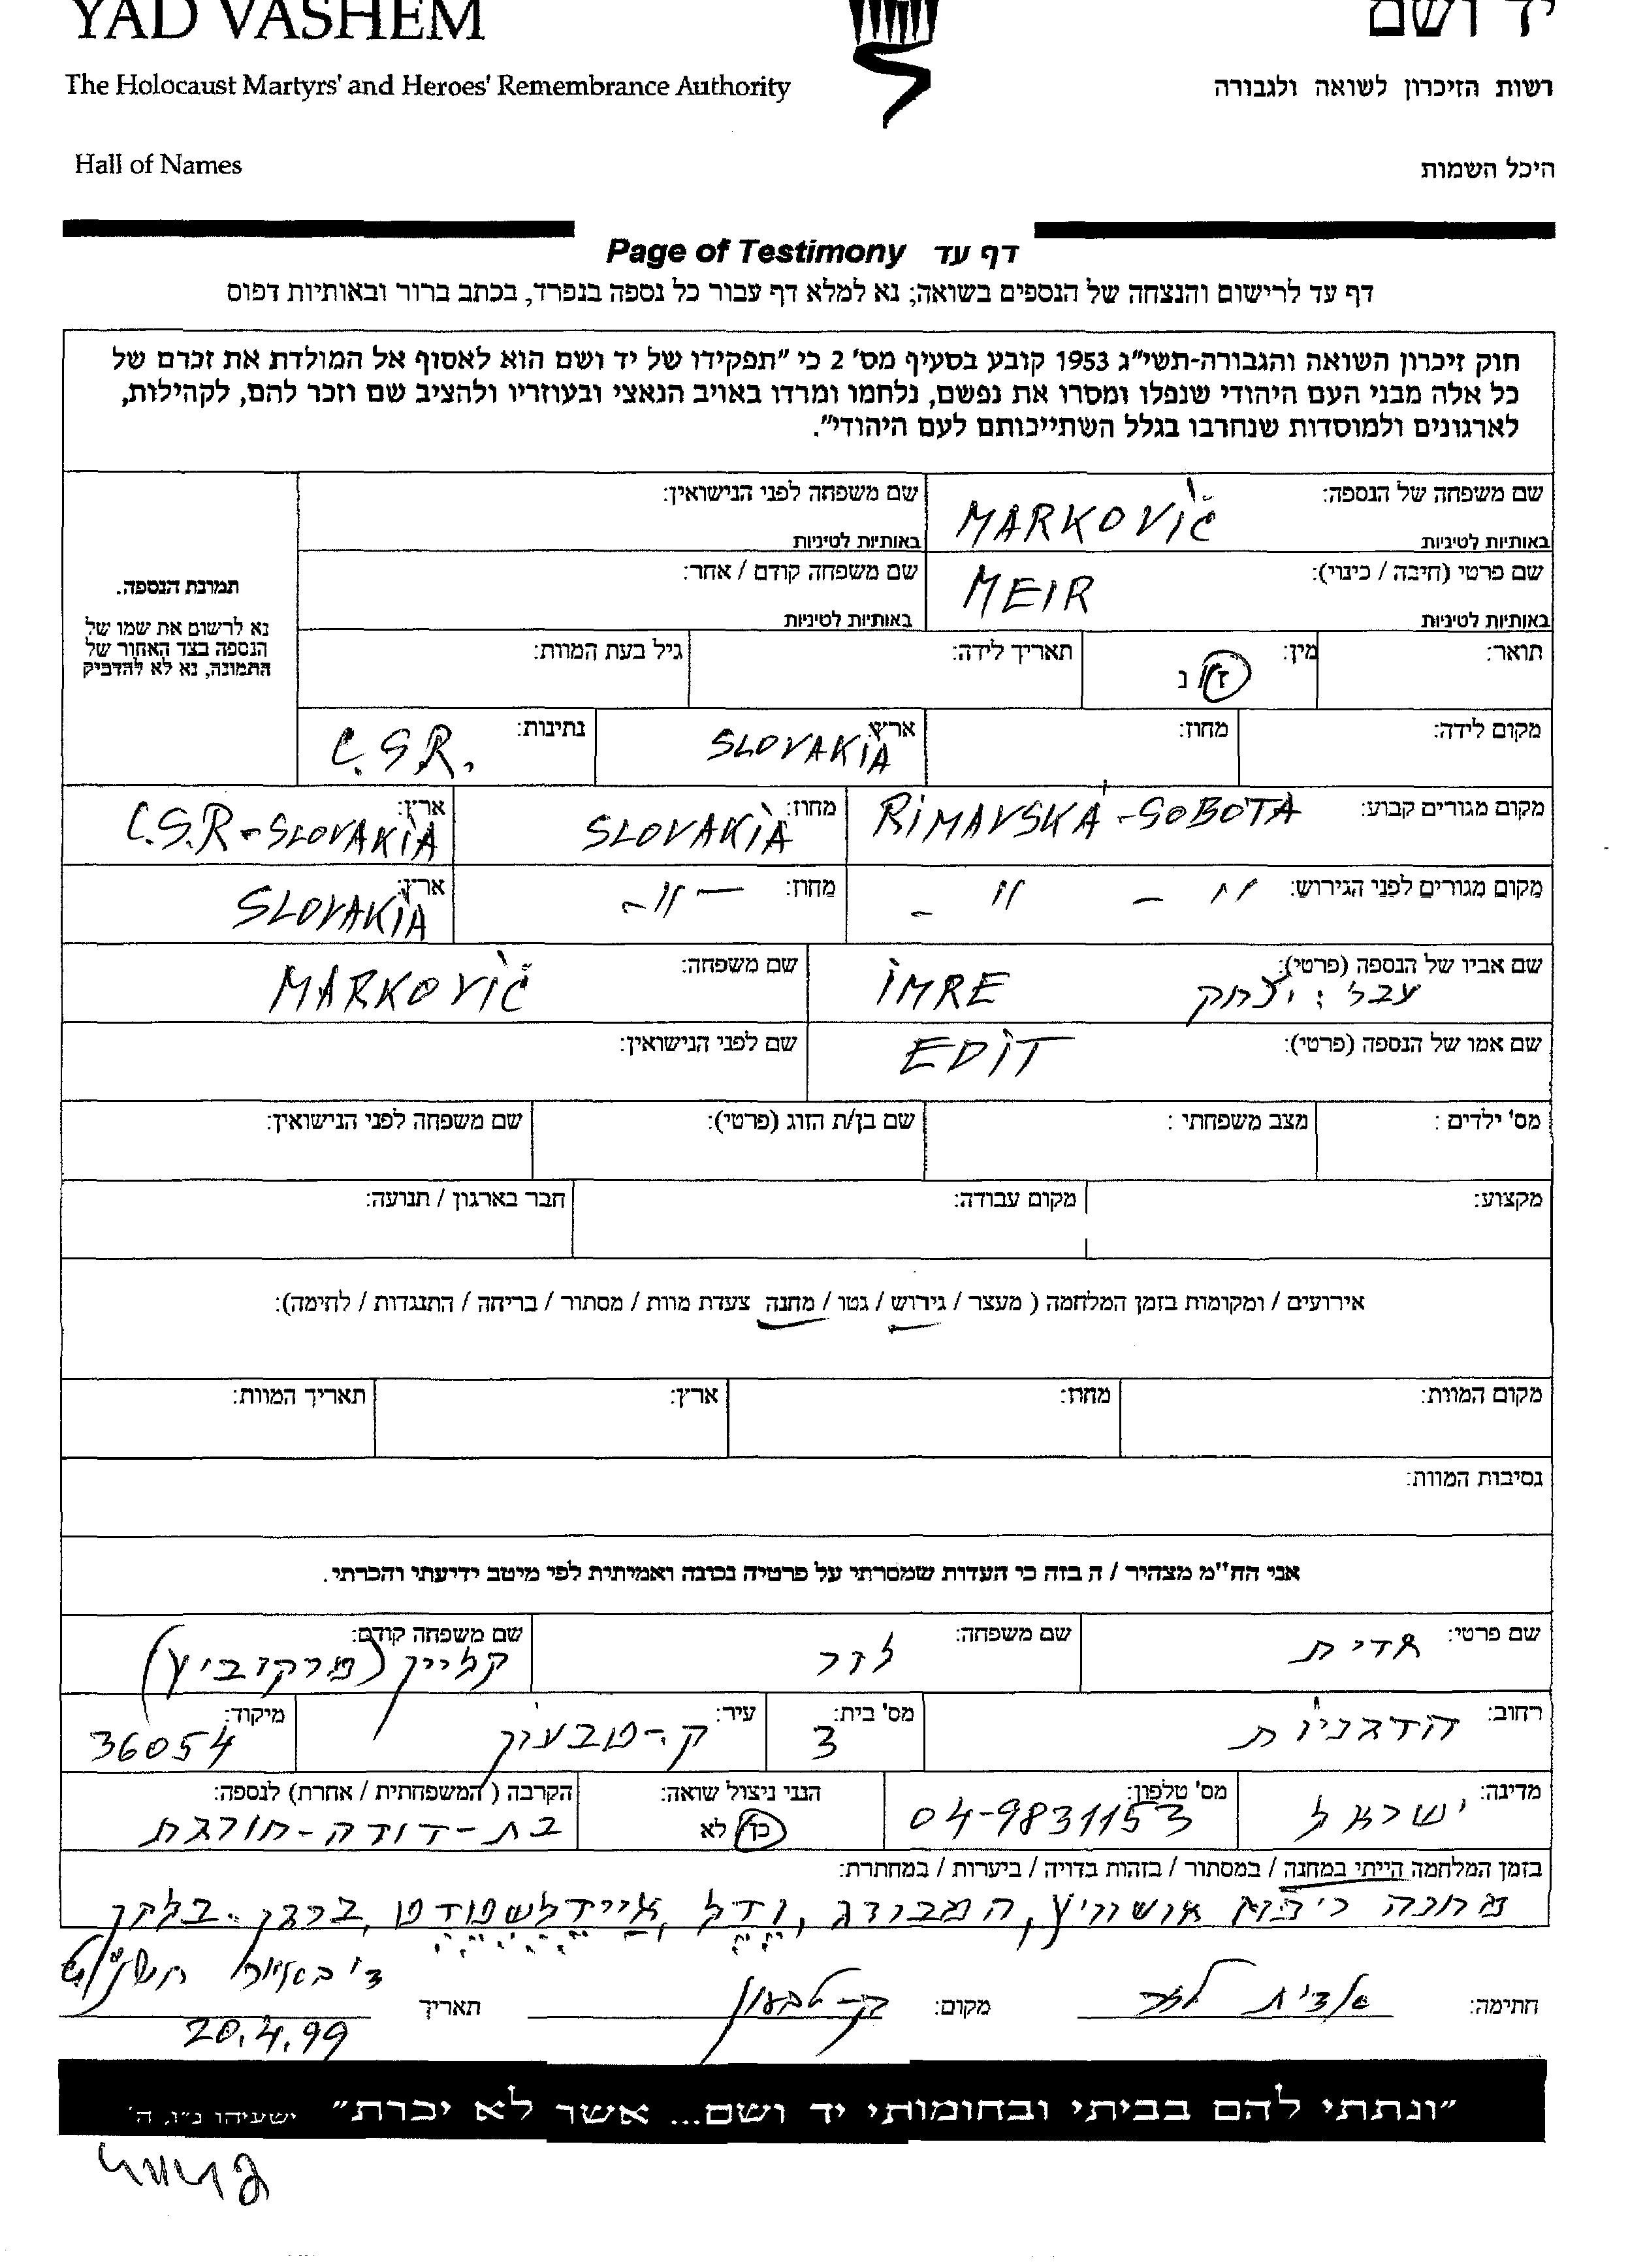 YAD VASHEM
יד ושם
The Holocaust Martyrs' and Heroes' Remembrance Authority
רשות הזיכרון לשואה ולגבורה
Hall of Names
היכל השמות
Page of Testimony דף עד
דף עד לרישום והנצחה של הנספים בשואה; נא למלא דף עבור כל נספה בנפרד, בכתב ברור ובאותיות דפוס
חוק זיכרון השואה והגבורה-תשי"ג 1953 קובע בסעיף מס' 2 כי "תפקידו של יד ושם הוא לאסוף אל המולדת את זכרם של
כל אלה מבני העם היהודי שנפלו ומסרו את נפשם, נלחמו ומרדו באויב הנאצי ובעוזריו ולהציב שם וזכר להם, לקהילות,
לארגונים ולמוסדות שנחרבו בגלל השתייכותם לעם היהודי".
שם משפחה של הנספה: MARKOVIČ
באותיות לטיניות
שם משפחה לפני הנישואין:
באותיות לטיניות
שם פרטי (חיבה / כינוי): MEIR
באותיות לטיניות
שם משפחה קודם / אחר:
באותיות לטיניות
תמונת הנספה.
נא לרשום את שמו של
הנספה בצד האחור של
התמונה, נא לא להדביק
תואר: מין: ז / נ תאריך לידה: גיל בעת המוות:
מקום לידה: מחוז: ארץ: SLOVAKIA נתינות: C.S.R.
מקום מגורים קבוע: RIMAVSKÁ-SOBOTA מחוז: SLOVAKIA ארץ: C.S.R-SLOVAKIA
מקום מגורים לפני הגירוש: 11 - 11 - מחוז: -11- ארץ: SLOVAKIA
שם אביו של הנספה (פרטי): עבר: יצחק IMRE שם משפחה: MARKOVIČ
שם אמו של הנספה (פרטי): EDIT שם לפני הנישואין:
מס' ילדים: מצב משפחתי: שם בן/ת הזוג (פרטי): שם משפחה לפני הנישואין:
מקצוע: מקום עבודה: חבר בארגון / תנועה:
אירועים / ומקומות בזמן המלחמה ( מעצר / גירוש / גטו / מחנה צעדת מוות / מסתור / בריחה / התנגדות / לחימה):
מקום המוות: מחוז: ארץ: תאריך המוות:
נסיבות המוות:
אני הח"מ מצהיר / ה בזה כי העדות שמסרתי על פרטיה נכונה ואמיתית לפי מיטב ידיעתי והכרתי.
שם פרטי: אדית שם משפחה: לזר שם משפחה קודם: קליין (מרקוביץ)
רחוב: הדגניות מס' בית: 3 עיר: ק.-טבעון מיקוד: 36054
מדינה: ישראל מס' טלפון: 04-9831153 הנני ניצול שואה: כן לא הקרבה ( המשפחתית / אחרת) לנספה: בת-דודה-חורגת
בזמן המלחמה הייתי במחנה / במסתור / בזהות בדויה / ביערות / במחתרת:
מחנה אושוויץ, המבורג, ודל, איידלשטדט, ברגן-בלזן
חתימה: אדית לזר מקום: ק-טבעון תאריך ד' באייר תשנ"ט
20.4.99
"ונתתי להם בביתי ובחומותי יד ושם... אשר לא יכרת" ישעיהו נ"ו, ה'